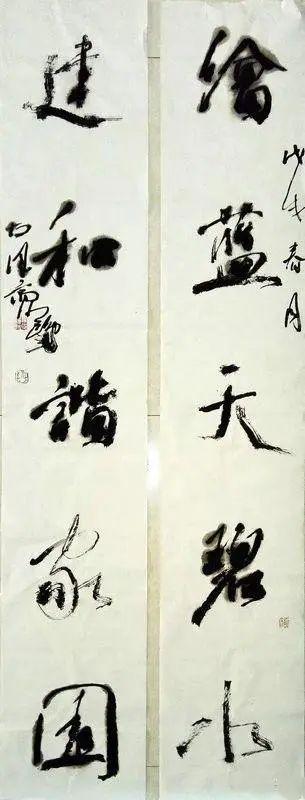 繪藍天碧水
戊戌春月
建和諧家園